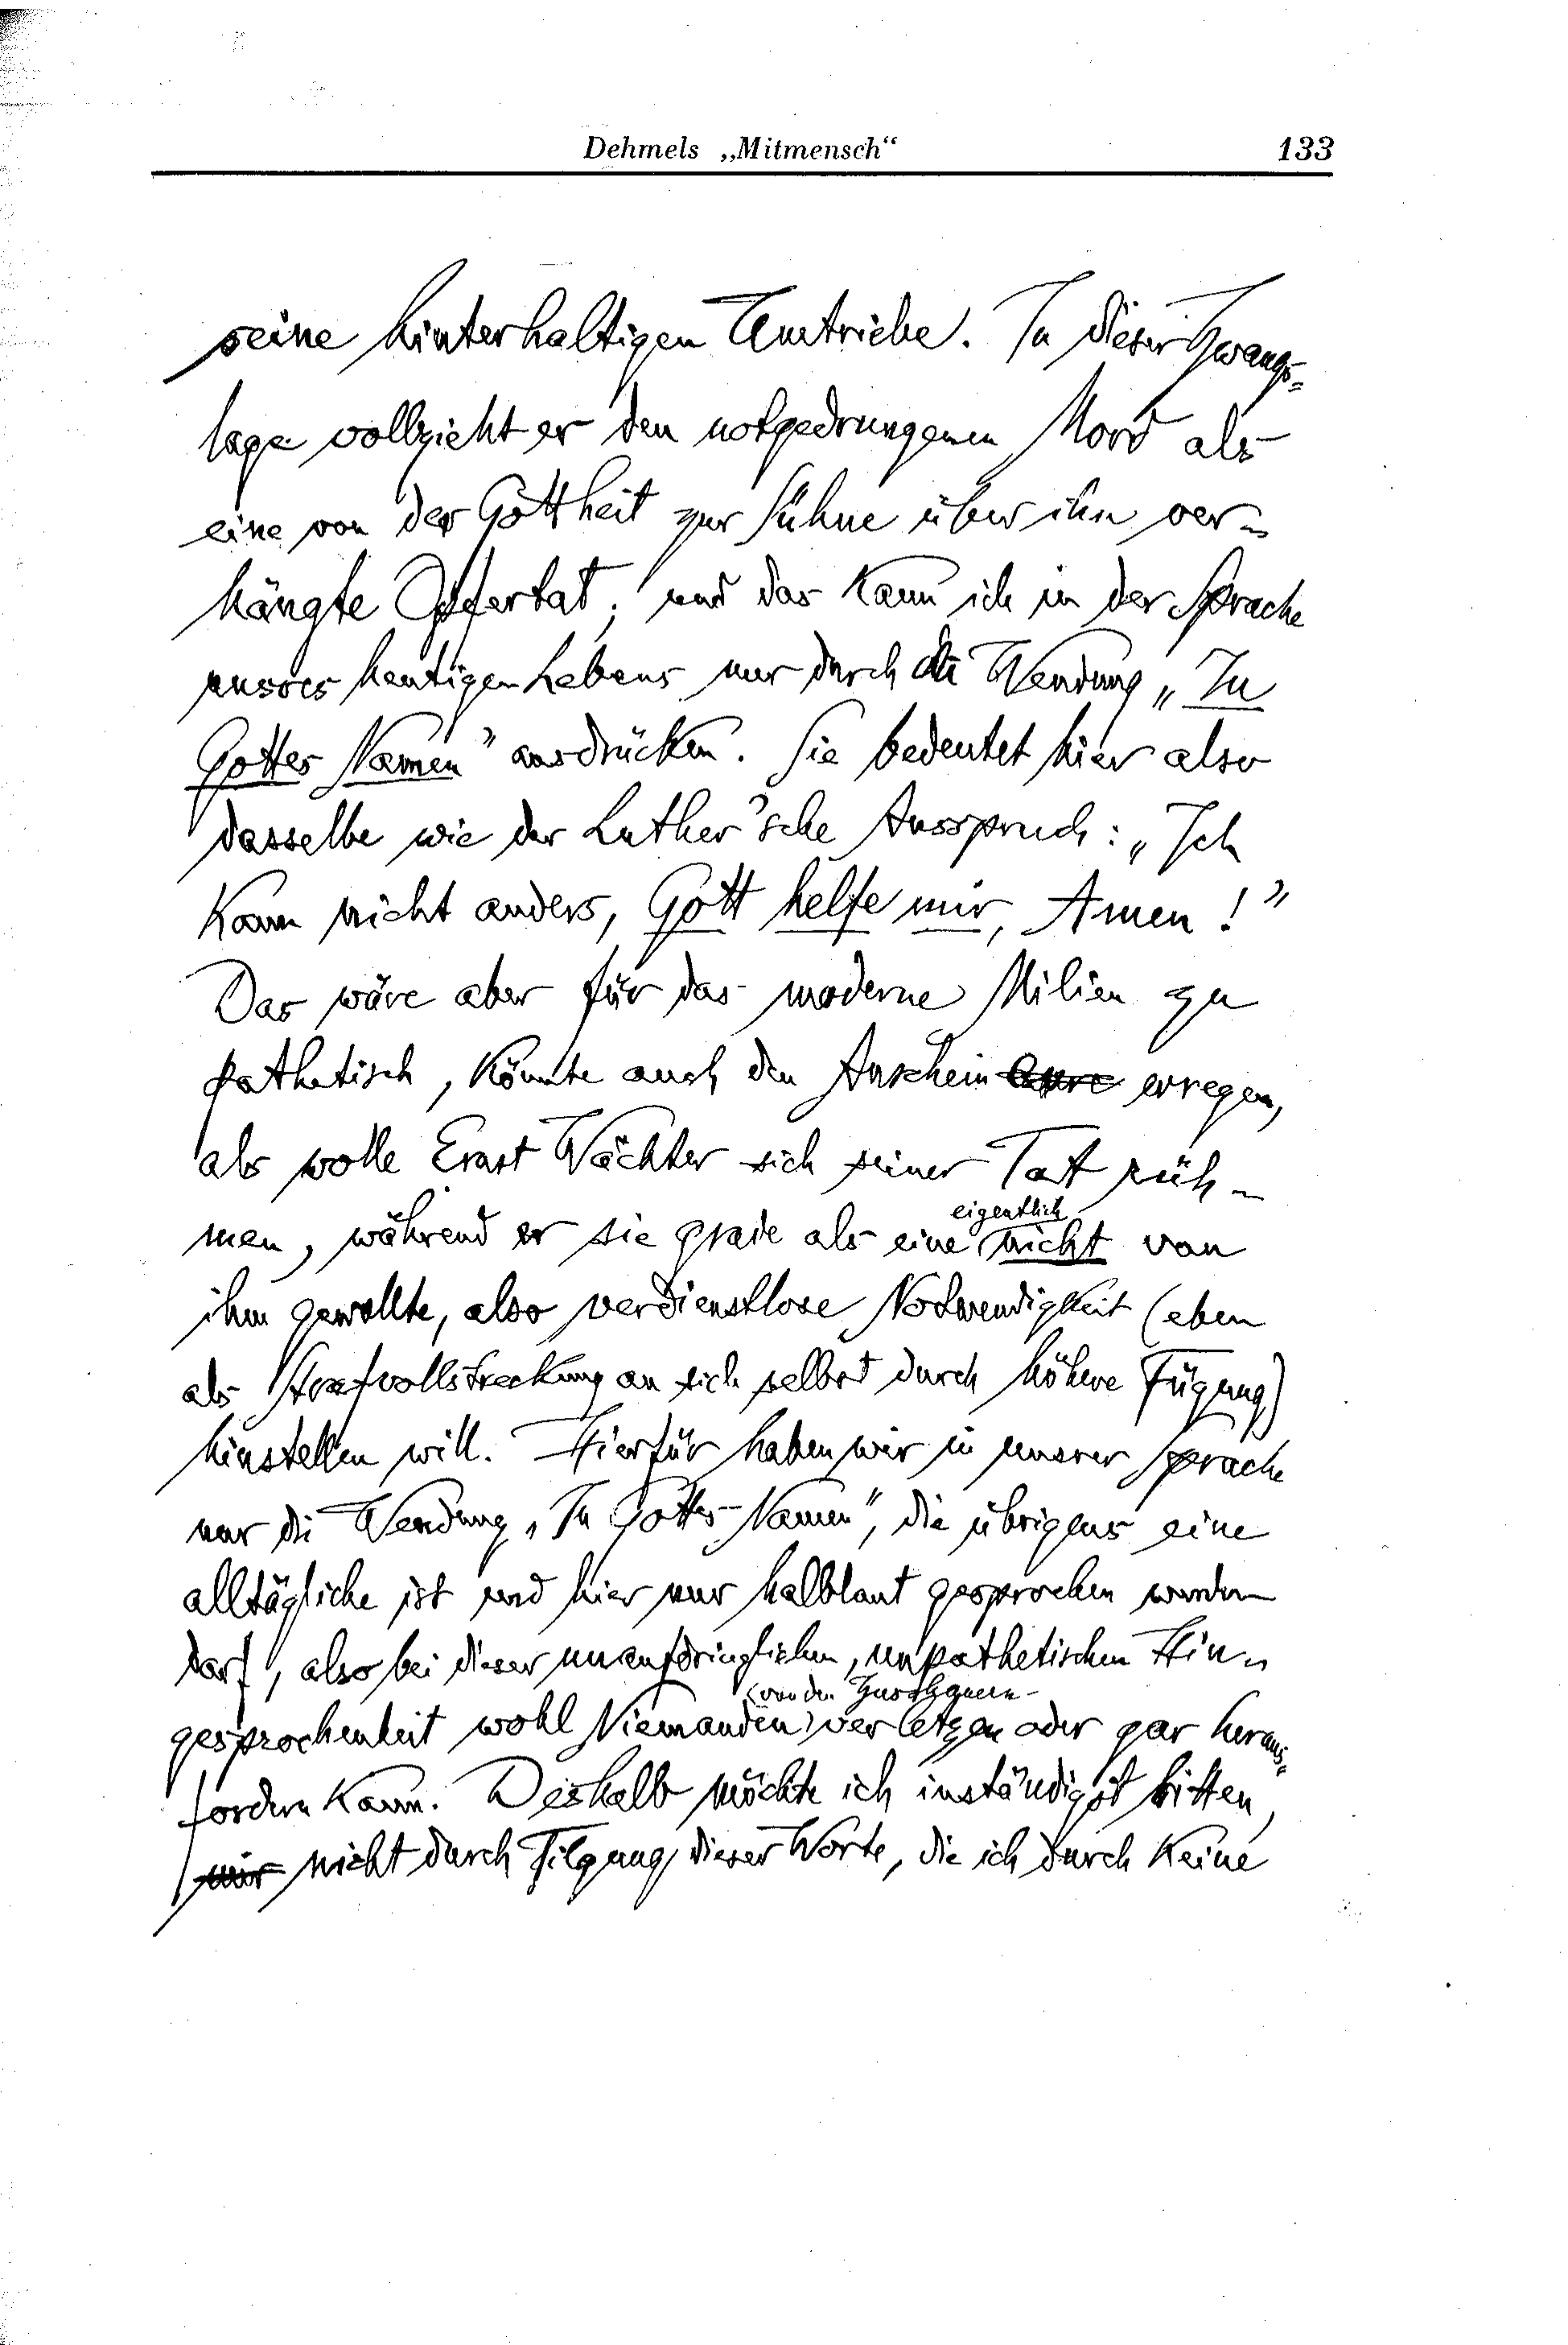 Dehmels „Mitmensch“ 133
seine hinterhaltigen Umtriebe. In dieser Zwangs=
lage vollzieht er den notgedrungenen Mord als
eine von der Gottheit zur Sühne über ihn ver=
hängte Opfertat; und das kann ich in der Sprache
unsres heutigen Lebens nur durch die Wendung „In
Gottes Namen” ausdrücken. Sie bedeutet hier also
dasselbe wie der Luther'sche Ausspruch: „Ich
kann nicht anders, Gott helfe mir, Amen!”
Das wäre aber für das moderne Milieu zu
pathetisch, könnte auch den Anschein erregen,
als wolle Ernst Wächter sich seiner Tat rüh=
eigentlich
men, während er sie grade als eine nicht von
ihm gewollte, also verdienstlose Notwendigkeit (eben
als Strafvollstreckung an sich selbst durch höhere Fügung)
hinstellen will. Hierfür haben wir in unserer Sprache
nur die Wendung „In Gottes Namen”, die übrigens eine
alltägliche ist und hier nur halblaut gesprochen werden
darf, also bei dieser unaufdringlichen, unpathetischen Hin=
(von den Zuschauern
gesprochenheit wohl Niemanden) verletzen oder gar heraus=
fordern kann. Deshalb möchte ich inständigst bitten,
mir nicht durch Tilgung dieser Worte, die ich durch keine